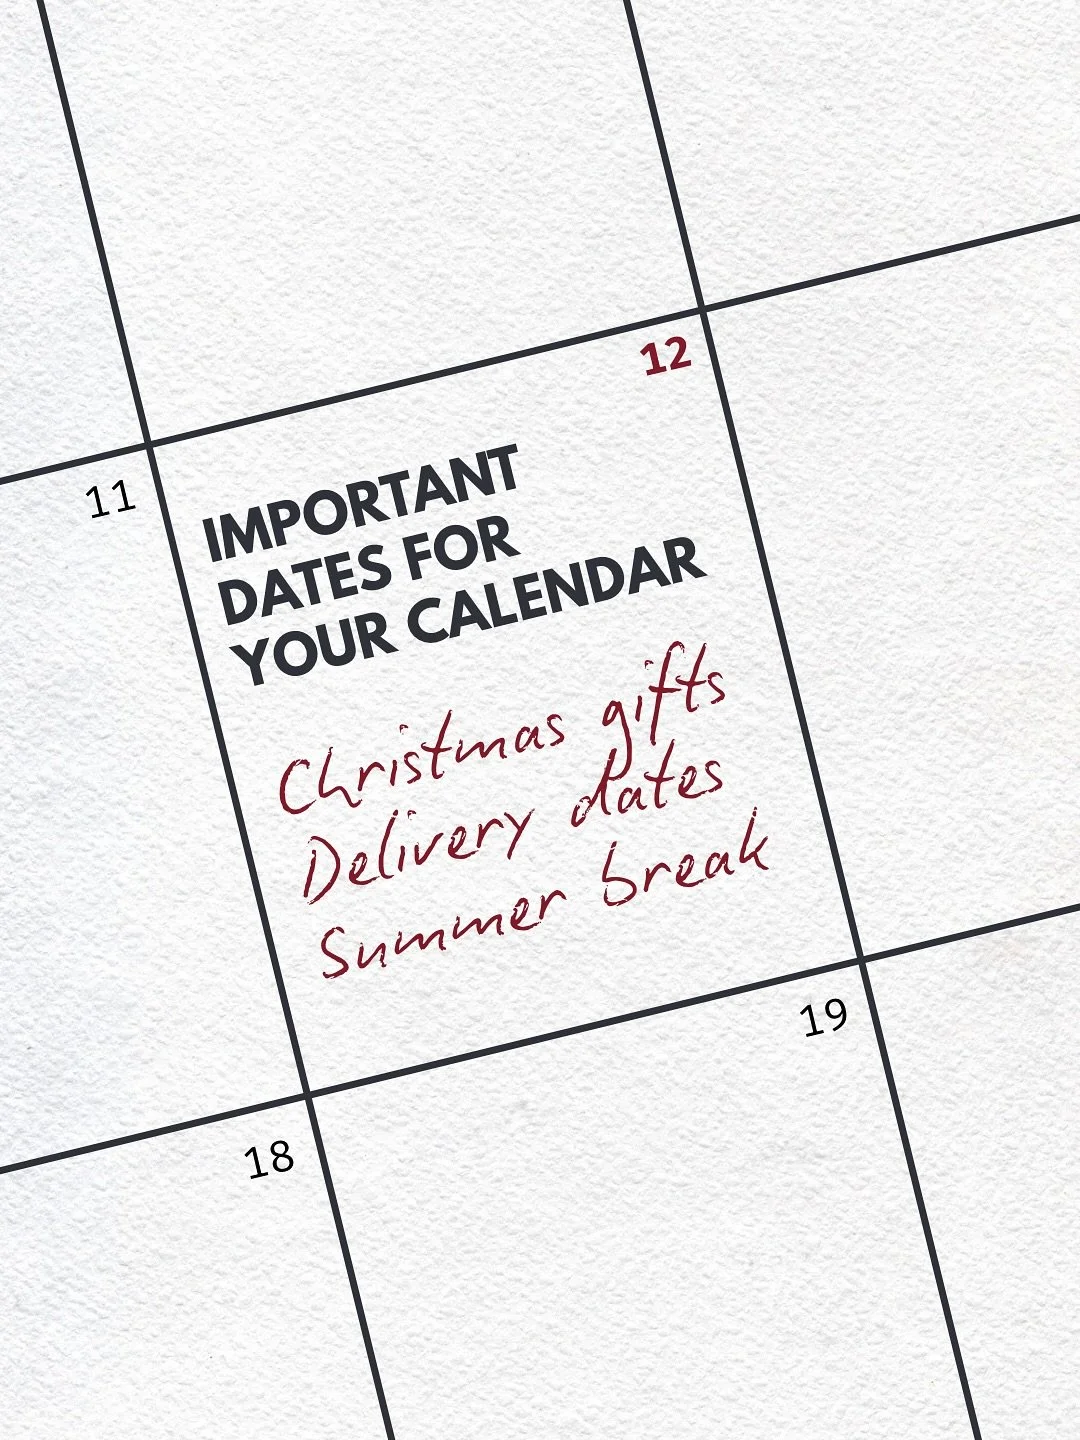 12
11
IMPORTANT
DATES FOR
YOUR CALENDAR
Christmas gifts
Delivery dates
Summer break
19
18